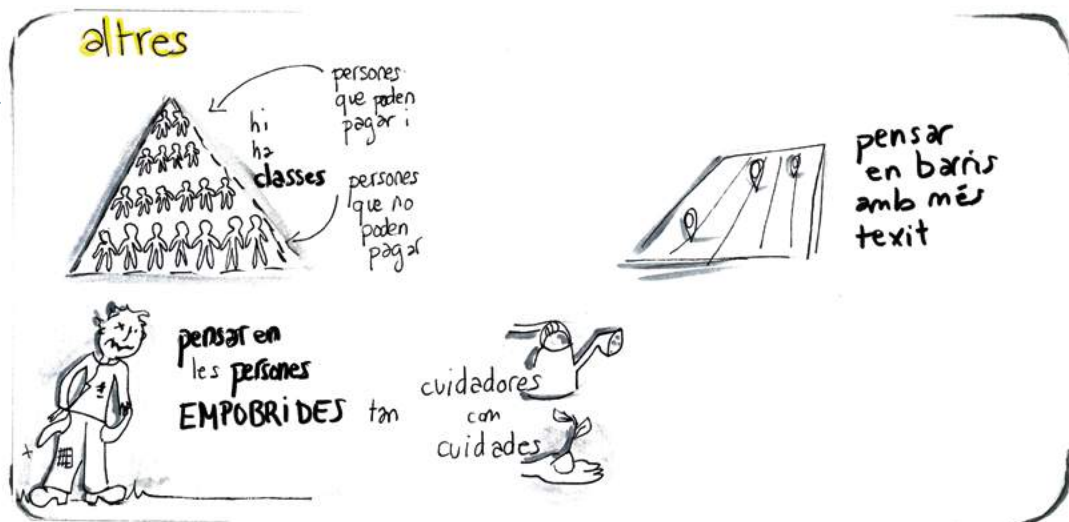 altres
persones
que poden
pagar i
hi
ha
classes
persones
que no
poden
pagar
pensar
en barris
amb més
texit
pensar en
les persones
EMPOBRIDES tan
cuidadores
com
cuidades